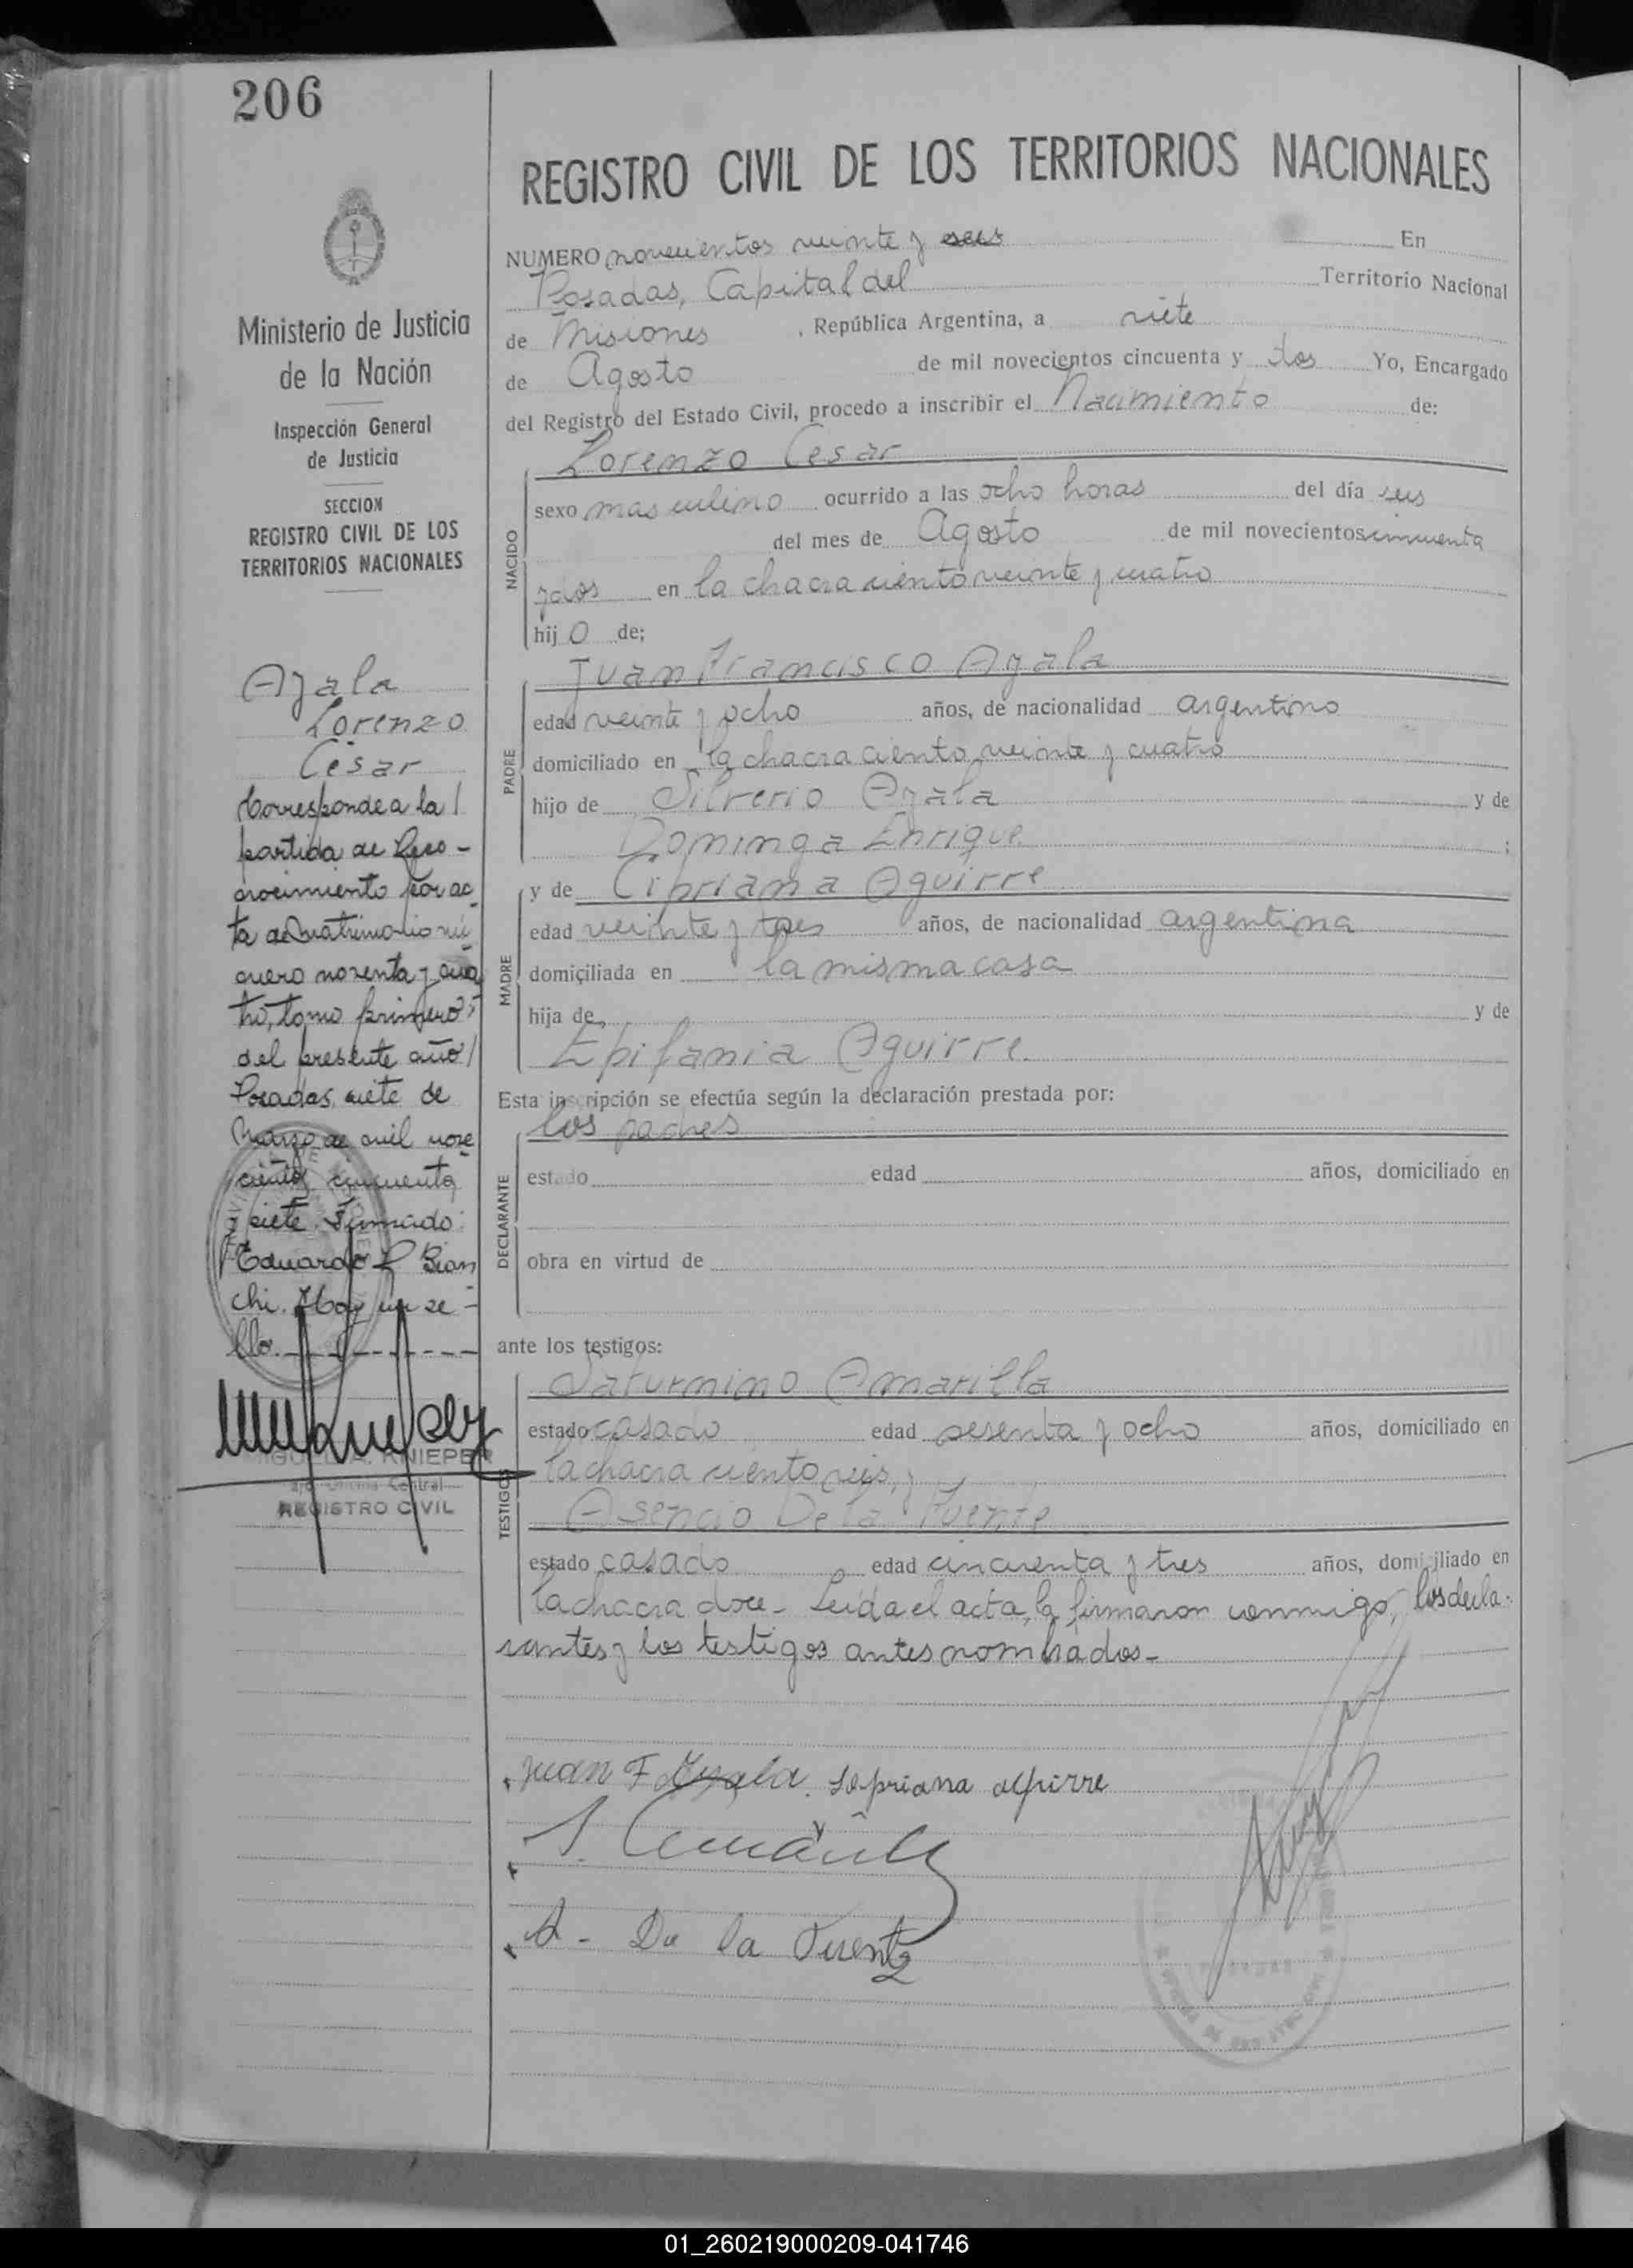 206
REGISTRO CIVIL DE LOS TERRITORIOS NACIONALES
NUMERO novecientos veinte y seis En
Posadas, Capital del Territorio Nacional
de Misiones, República Argentina, a siete
de Agosto de mil novecientos cincuenta y dos Yo, Encargado
del Registro del Estado Civil, procedo a inscribir el Nacimiento de:
Lorenzo Cesar
NACIDO
sexo masculino ocurrido a las ocho horas del día seis
del mes de Agosto de mil novecientos cincuenta
y dos en la chacra ciento veinte y cuatro
hijo de;
Juan Francisco Ayala
PADRE
edad veinte y ocho años, de nacionalidad argentino
domiciliado en la chacra ciento veinte y cuatro
hijo de Silverio Ayala y de
Dominga Enrique ;
MADRE
y de Cipriana Aguirre
edad veinte y tres años, de nacionalidad argentina
domiciliada en la misma casa
hija de, y de
Epifania Aguirre.
Esta inscripción se efectúa según la declaración prestada por:
los padres
DECLARANTE
estado edad años, domiciliado en
obra en virtud de
ante los testigos:
TESTIGOS
Saturnino Amarilla
estado casado edad sesenta y ocho años, domiciliado en
la chacra ciento seis, y
Asencio De la Fuente
estado casado edad cincuenta y tres años, domiciliado en
la chacra doce - Leída el acta, la firmaron conmigo, los decla-
rantes y los testigos antes nombrados -
Juan F Ayala. Sepriana Aguirre
A - De la Fuente
Ministerio de Justicia
de la Nación
Inspección General
de Justicia
SECCION
REGISTRO CIVIL DE LOS
TERRITORIOS NACIONALES
Ayala
Lorenzo
Cesar
Corresponde a la /
partida de Reco-
nocimiento por ac-
ta de Matrimonio nú-
mero noventa y cua
tro, tomo primero
del presente año /
Posadas, siete de
Marzo de mil nove-
cientos cincuenta
y siete. Firmado:
Eduardo L Bian-
chi. Hay un se-
llo.
MIGUEL A. KNIEPER
Oficina Central
REGISTRO CIVIL
01_260219000209-041746